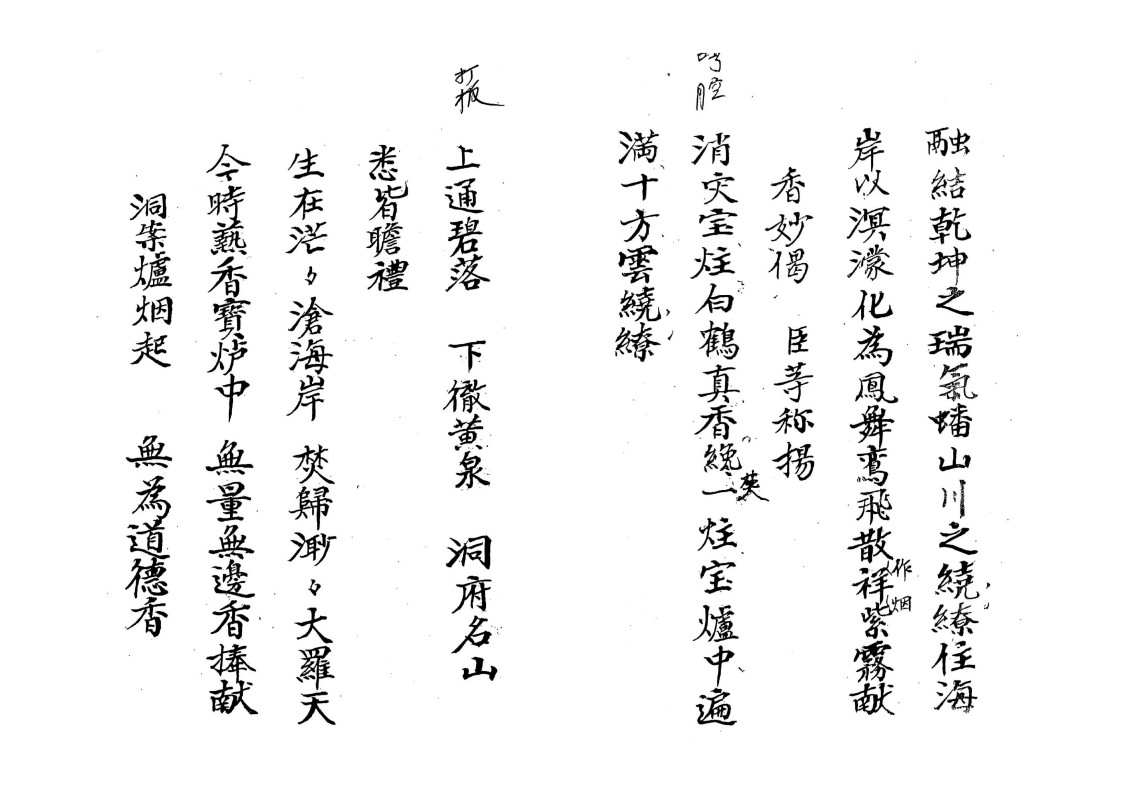 融結乾坤之瑞氣蟠山川之繞繚住海
岸以溟濛化為鳳舞鸞飛散祥紫霧献
作烟
香妙偈 臣等称揚
吟腔
消灾宝炷白鶴真香纔一炷宝爐中遍
爇
满十方雲繞繚
打板
上通碧落 下徹黄泉 洞府名山
悉皆瞻禮
生在茫々滄海岸 焚歸渺々大羅天
今時爇香寳炉中 無量無邊香捧献
洞案爐烟起 無為道德香